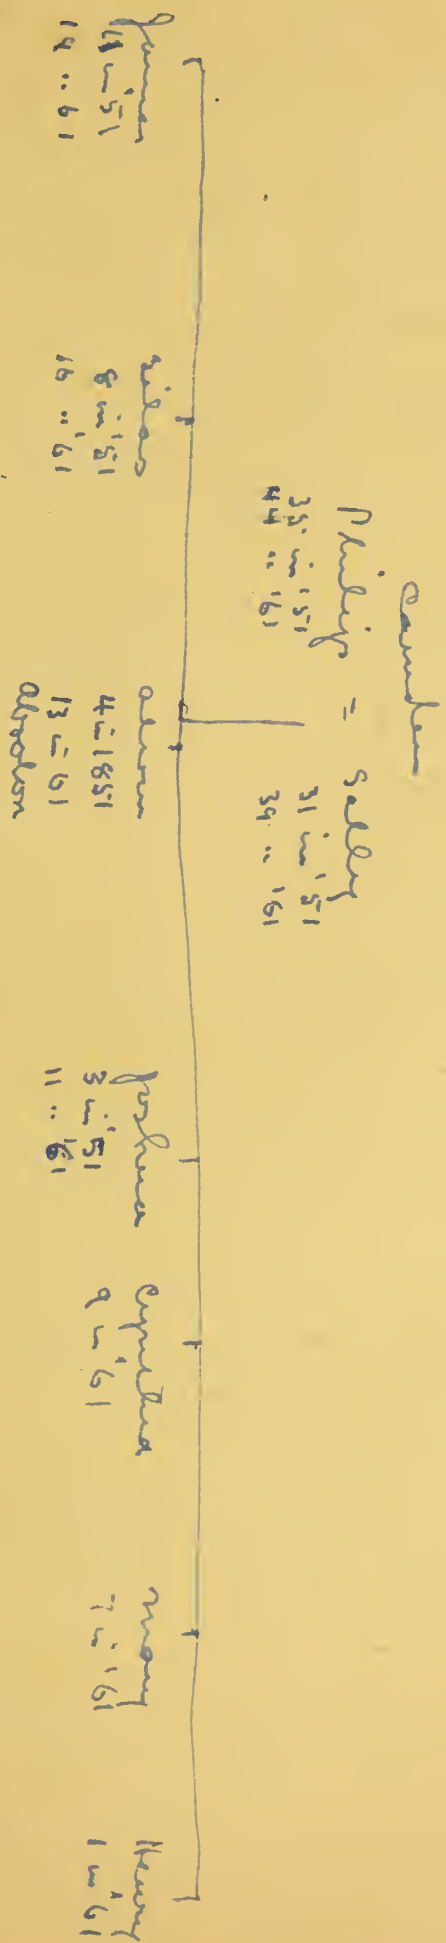 Camden
Philip = Sally
35 in '51 31 in '51
44 " '61 39 " '61
James
in '51
19 " 61
Silas
8 in '51
" '61
4 in 1851
13 in 61
Absolom
Joshua
3 in '51
11 " '61
Cynthia
9 in 61
Mary
7 in '61
Henry
1 in 61